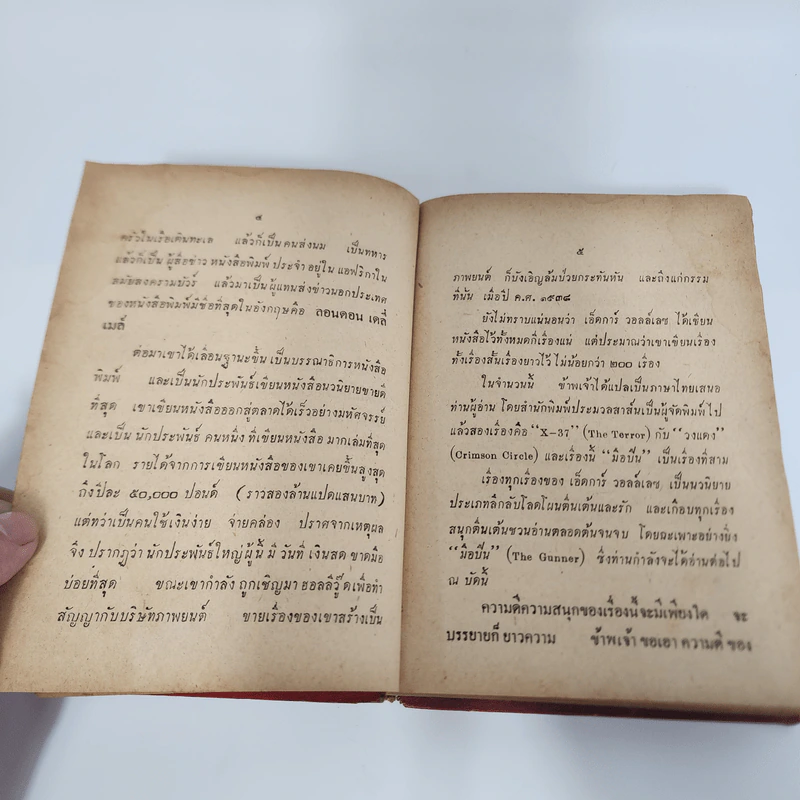 ๔
ครัวในเรือเดินทะเล แล้วก็เป็น คนส่งนม เป็นทหาร
แล้วก็เป็น ผู้สื่อข่าว หนังสือพิมพ์ ประจำ อยู่ใน แอฟริกาใน
สมัยสงครามบัวร์ แล้วมาเป็น ผู้แทนส่งข่าวนอกประเทศ
ของหนังสือพิมพ์มีชื่อที่สุดในอังกฤษคือ ลอนดอน เดลี่
เมล์
ต่อมาเขาได้เลื่อนฐานะขึ้น เป็นบรรณาธิการหนังสือ
พิมพ์ และเป็นนักประพันธ์เขียนหนังสือนวนิยายขายดี
ที่สุด เขาเขียนหนังสือออกสู่ตลาดได้เร็วอย่างมหัศจรรย์
และเป็น นักประพันธ์ คนหนึ่ง ที่เขียนหนังสือ มากเล่มที่สุด
ในโลก รายได้จากการเขียนหนังสือของเขาเคยขึ้นสูงสุด
ถึงปีละ ๕๐,๐๐๐ ปอนด์ (ราวสองล้านแปดแสนบาท)
แต่ทว่าเป็นคนใช้เงินง่าย จ่ายคล่อง ปราศจากเหตุผล
จึง ปรากฏว่า นักประพันธ์ใหญ่ผู้นี้ มี วันที่ เงินสด ขาดมือ
บ่อยที่สุด ขณะเขากำลัง ถูกเชิญมา ฮอลลิวู๊ด เพื่อทำ
สัญญากับบริษัทภาพยนต์ ขายเรื่องของเขาสร้างเป็น
๕
ภาพยนต์ ก็บังเอิญล้มป่วยกระทันหัน และถึงแก่กรรม
ที่นั้น เมื่อปี ค.ศ. ๑๙๓๘
ยังไม่ทราบแน่นอนว่า เอ็ดการ์ วอลล์เลซ ได้เขียน
หนังสือไว้ทั้งหมดกี่เรื่องแน่ แต่ประมาณว่าเขาเขียนเรื่อง
ทั้งเรื่องสั้นเรื่องยาวไว้ ไม่น้อยกว่า ๒๐๐ เรื่อง
ในจำนวนนี้ ข้าพเจ้าได้แปลเป็นภาษาไทยเสนอ
ท่านผู้อ่าน โดยสำนักพิมพ์ประมวลสาส์นเป็นผู้จัดพิมพ์ไป
แล้วสองเรื่องคือ “X-37” (The Terror) กับ “วงแดง”
(Crimson Circle) และเรื่องนี้ “มือปืน” เป็นเรื่องที่สาม
เรื่องทุกเรื่องของ เอ็ดการ์ วอลล์เลซ เป็นนวนิยาย
ประเภทลึกลับโลดโผนตื่นเต้นและรัก และเกือบทุกเรื่อง
สนุกตื่นเต้นชวนอ่านตลอดต้นจนจบ โดยฉะเพาะอย่างยิ่ง
“มือปืน” (The Gunner) ซึ่งท่านกำลังจะได้อ่านต่อไป
ณ บัดนี้
ความดีความสนุกของเรื่องนี้จะมีเพียงใด จะ
บรรยายก็ ยาวความ ข้าพเจ้า ขอเอา ความดี ของ